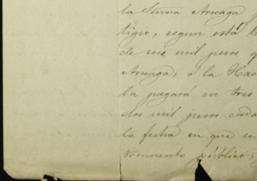 la Señora Arteaga
tigio, segun está
de seis mil pesos
Arteaga, á la Hac
la pagará en tres
dos mil pesos cada
la fecha en que se
público,